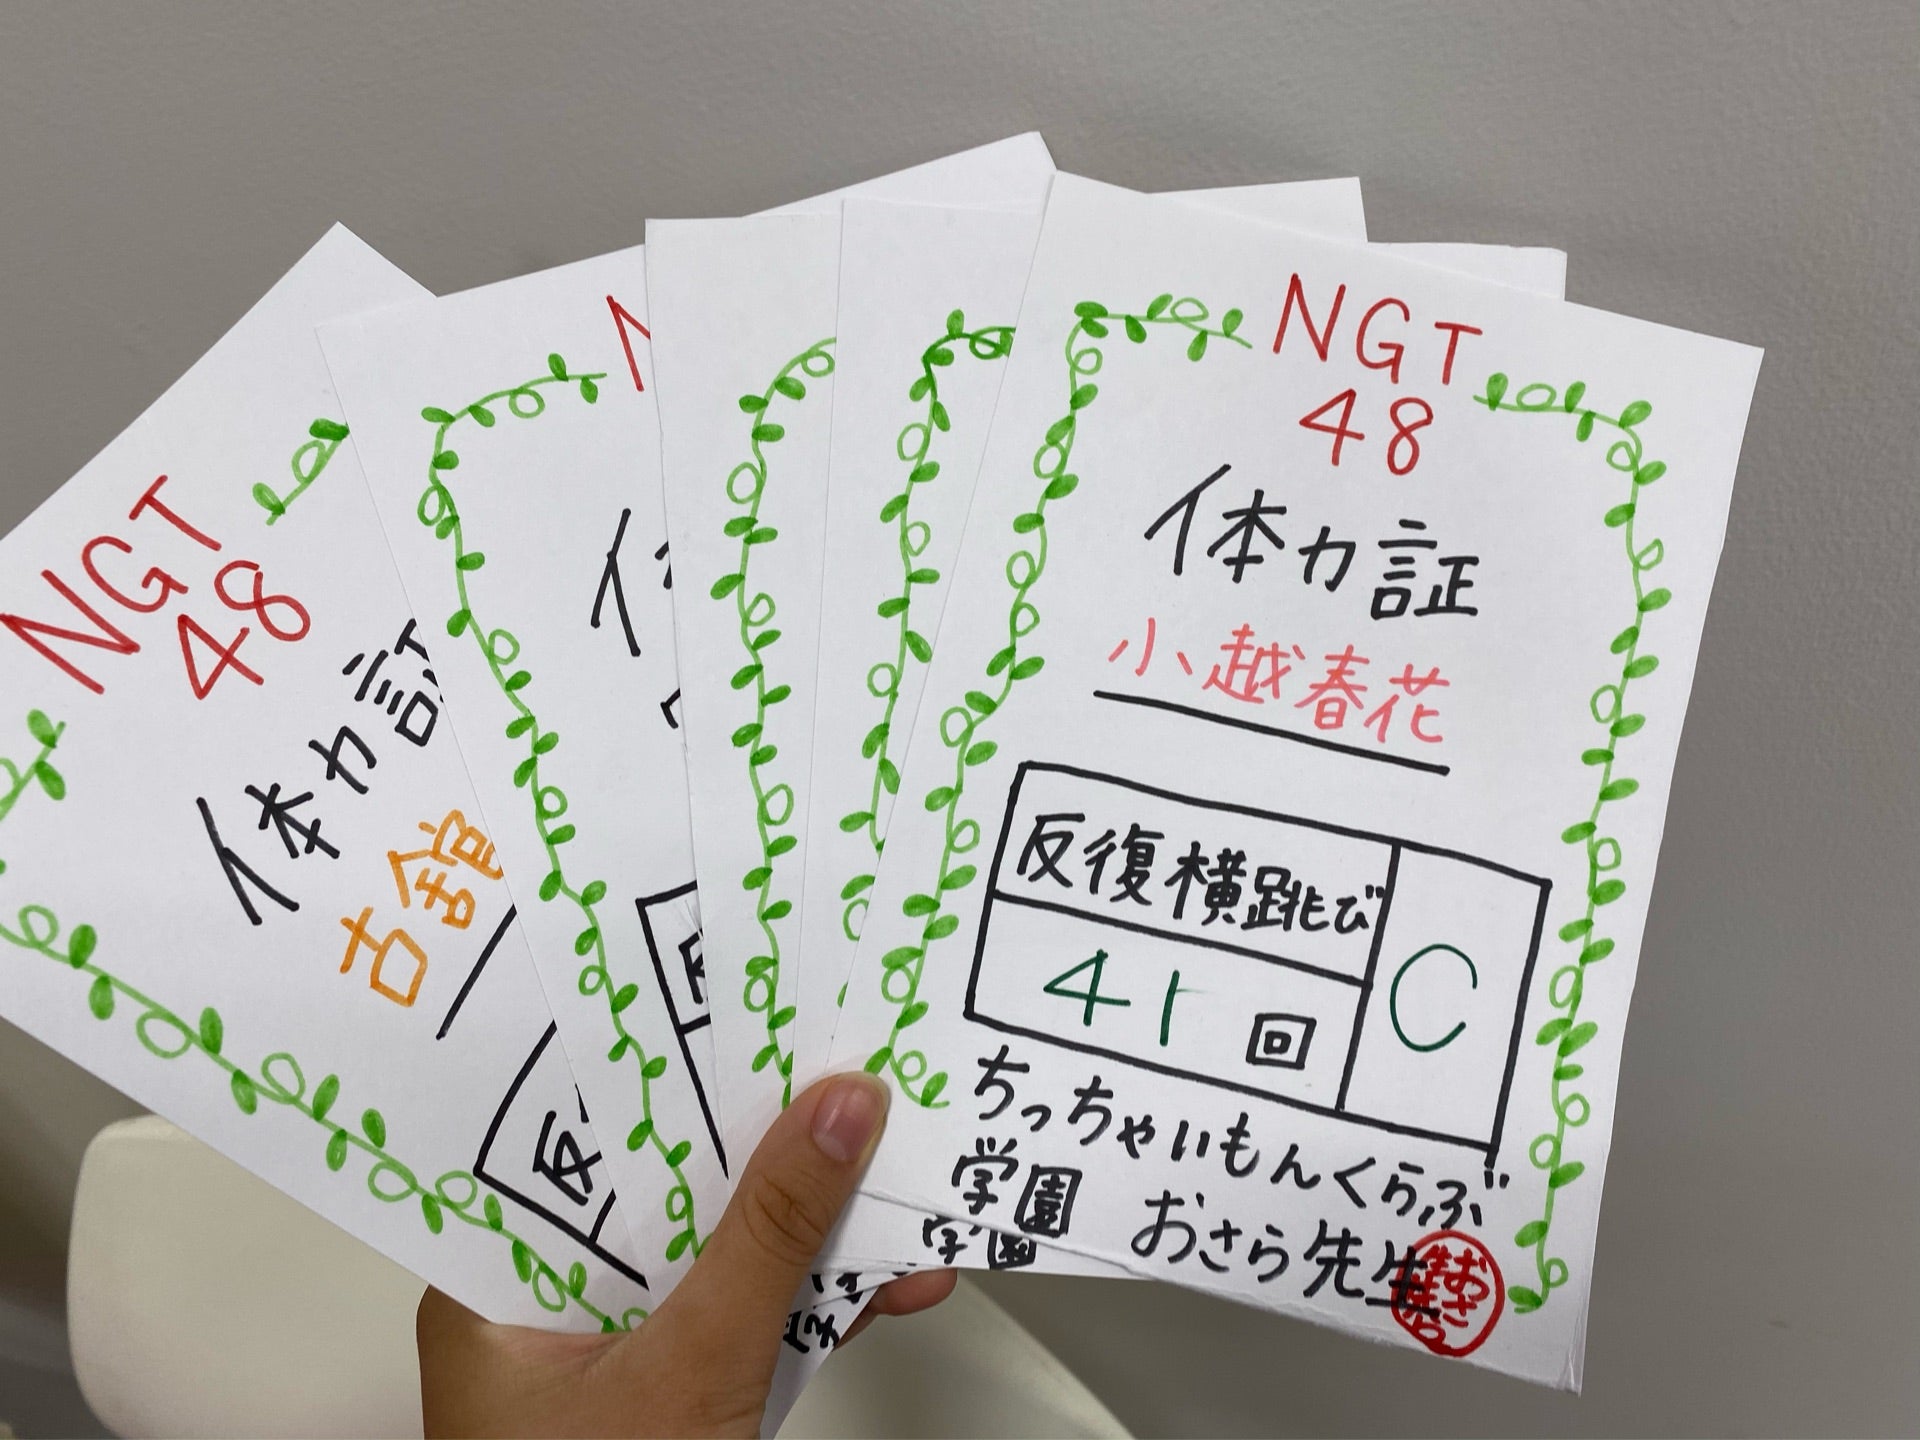 NGT
48
体力証
小越春花
反復横跳び
41回
C
ちっちゃいもんくらぶ
学園 おさら先生
NGT
48
体力証
古舘
反
N
体
学園